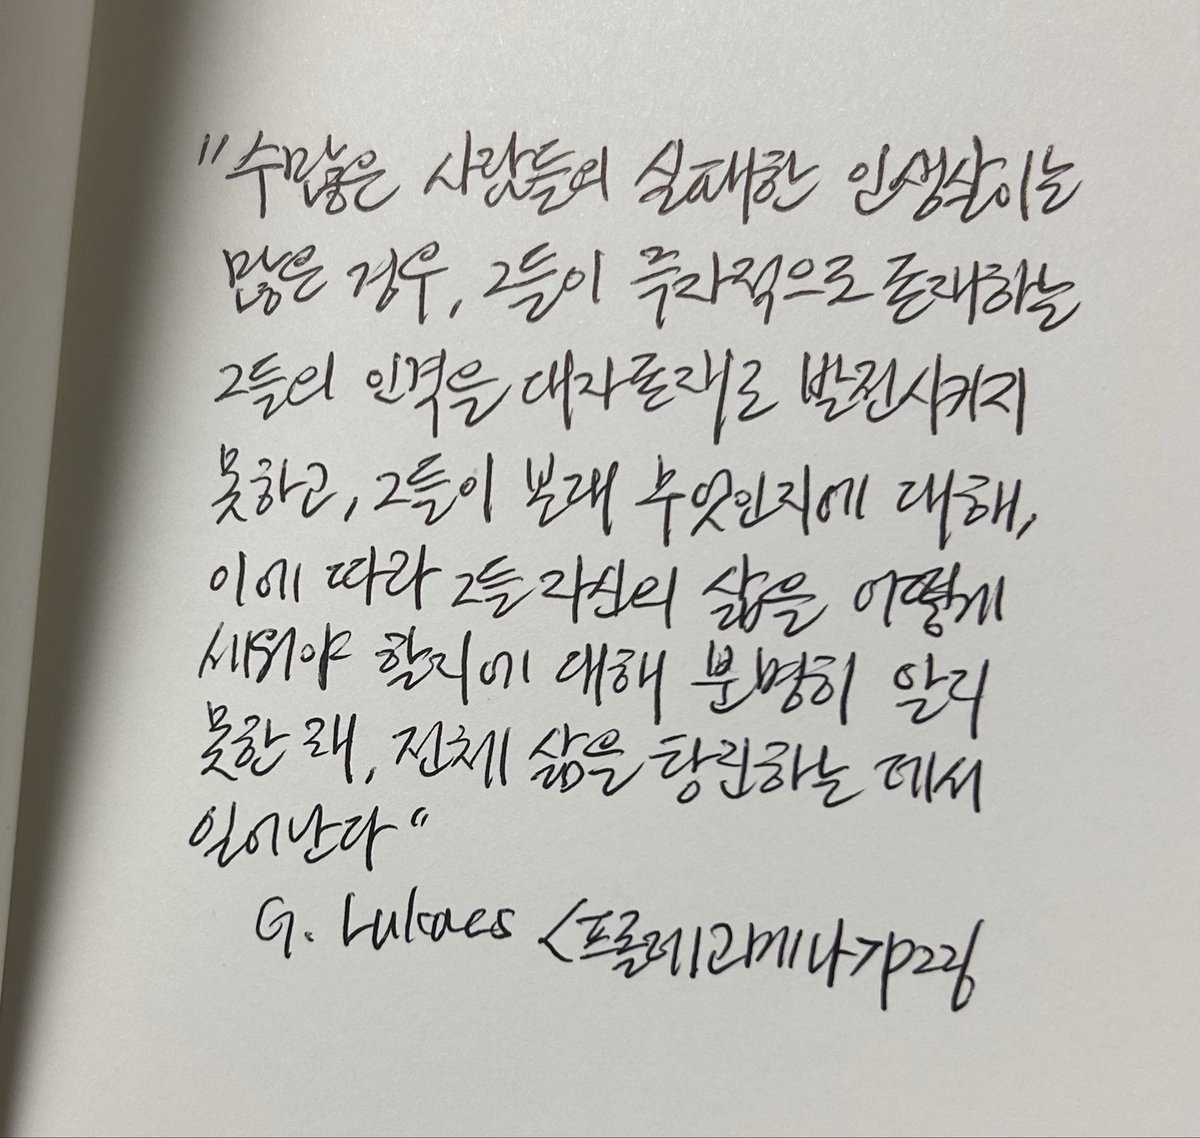 "수많은 사람들의 실패한 인생살이는
많은 경우, 그들이 즉자적으로 존재하는
그들의 인격을 대자존재로 발전시키지
못하고, 그들이 본래 무엇인지에 대해,
이에 따라 그들 자신의 삶을 어떻게
세워야 할지에 대해 분명히 알지
못한 채, 전체 삶을 탕진하는 데서
일어난다"
G. Lukacs <프롤레고메나> p